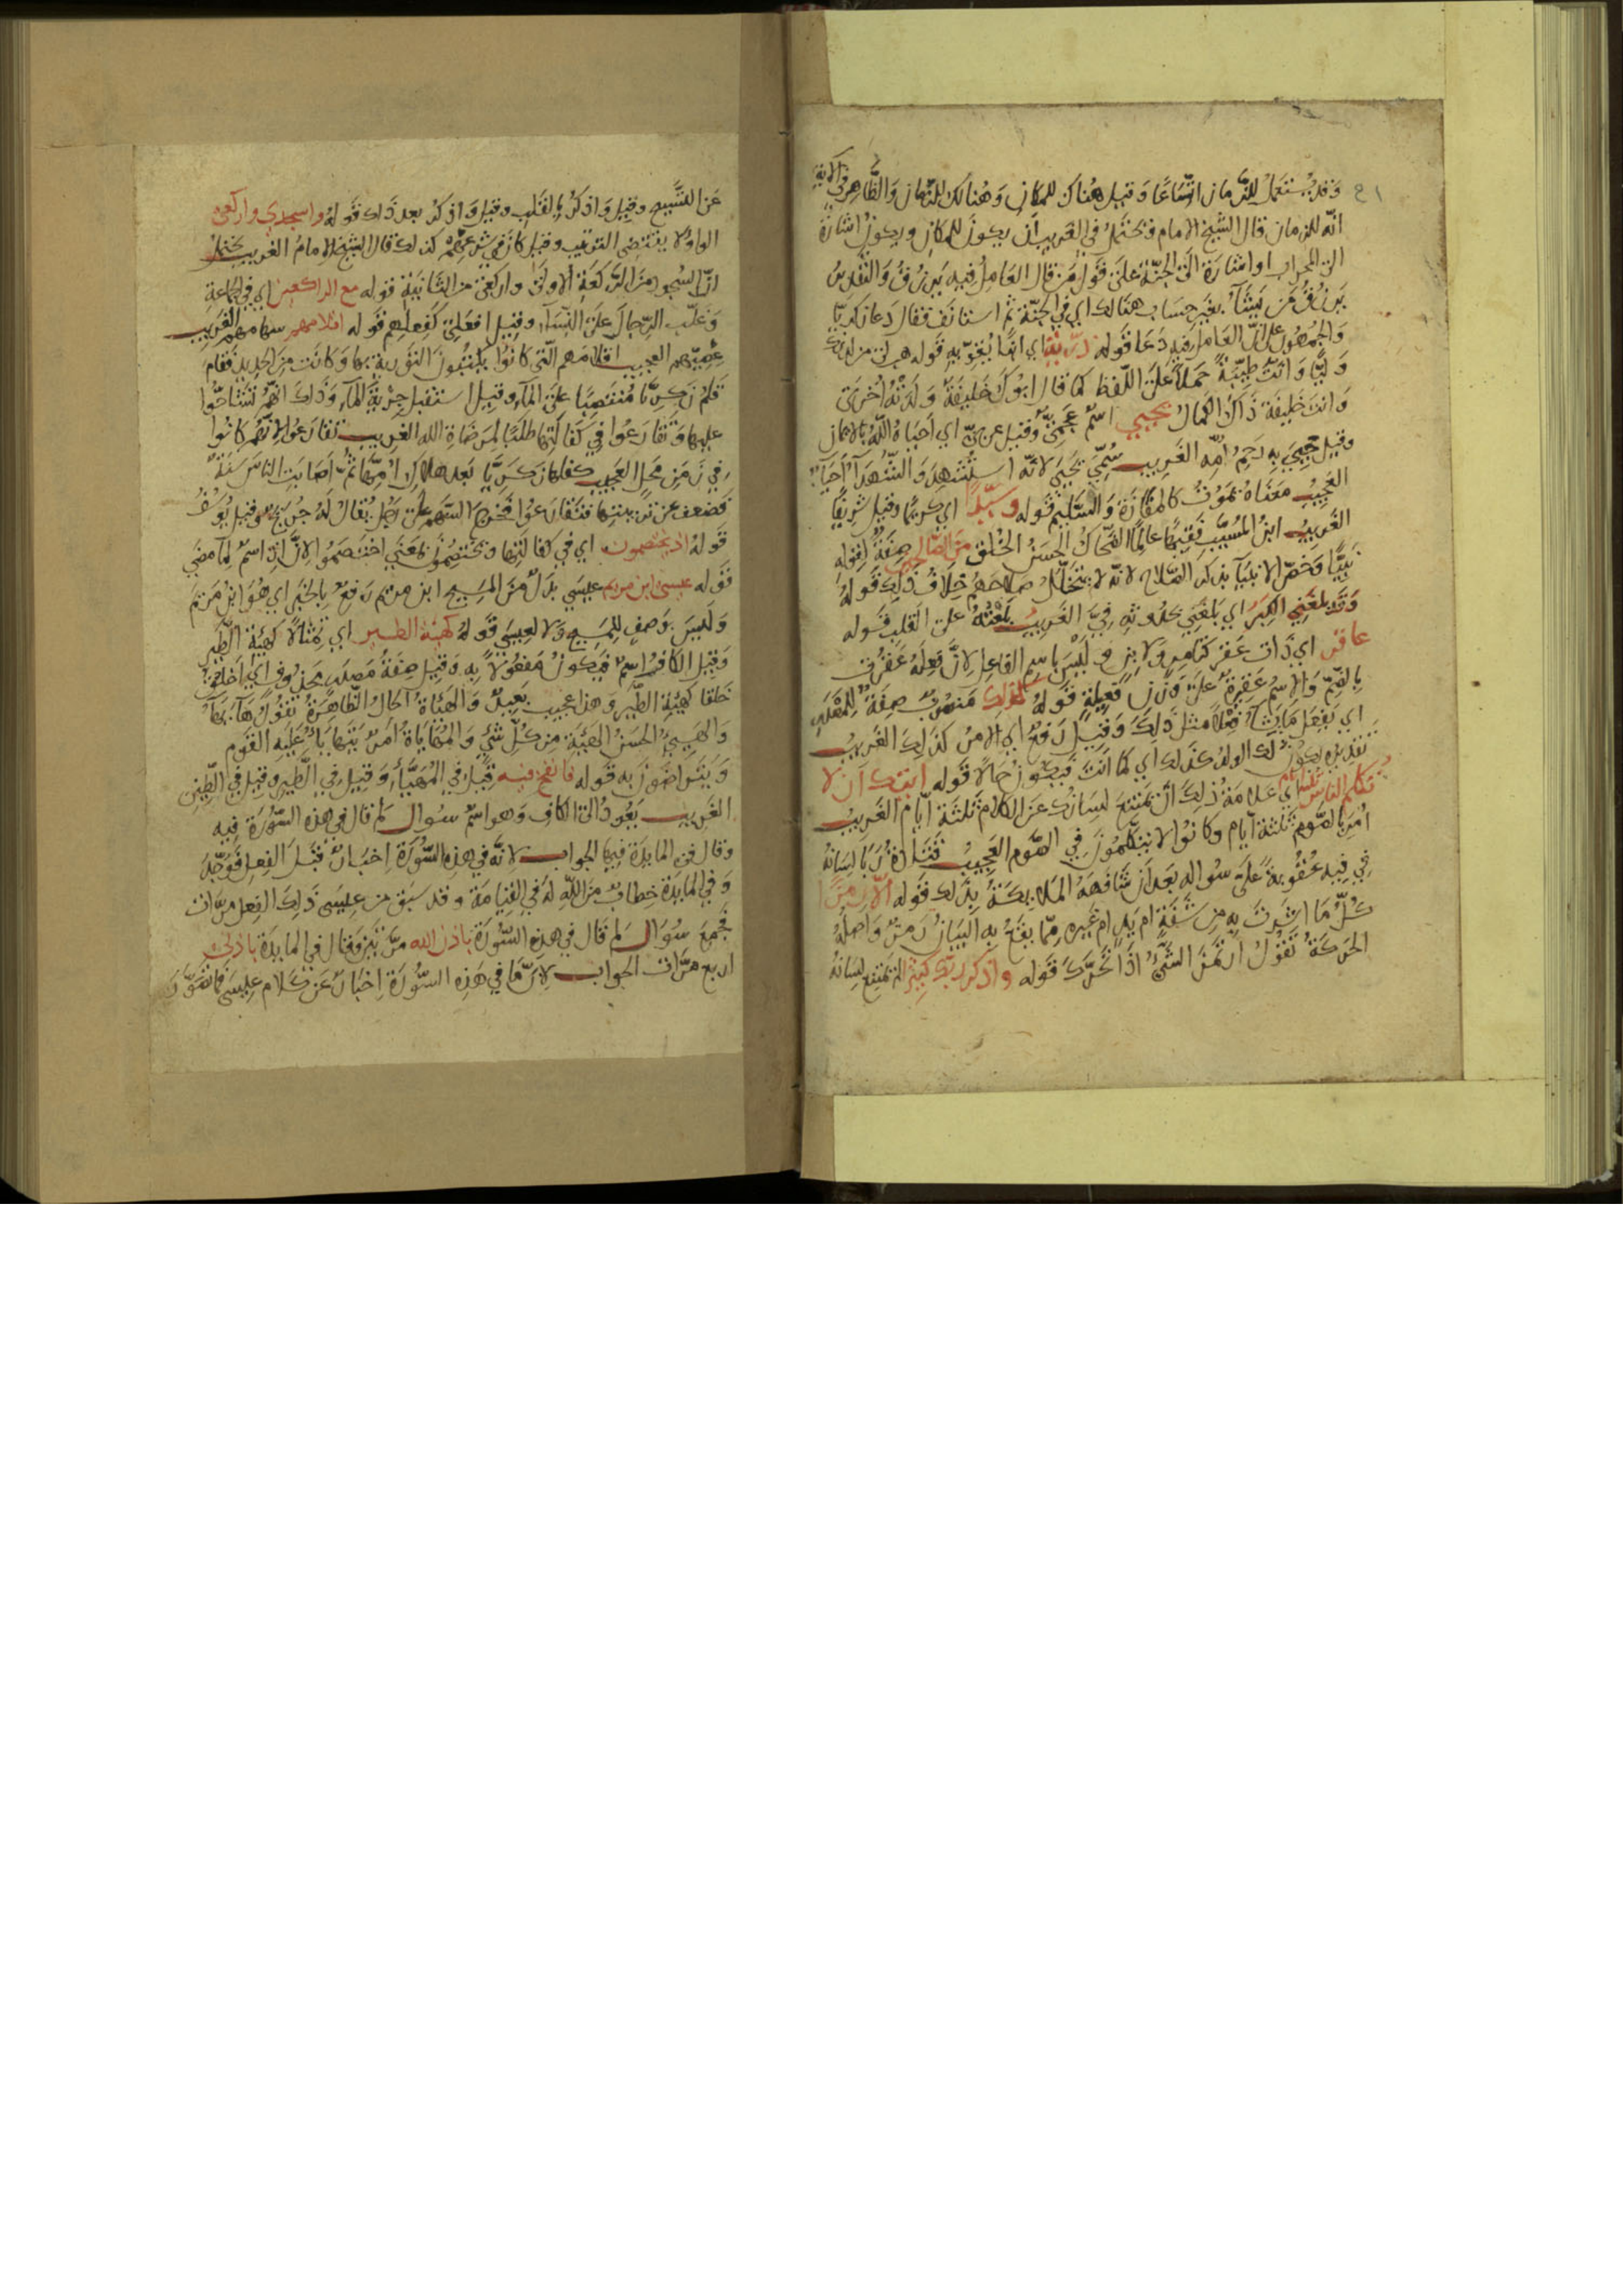 ٤١
وقد يستعمل للزمان اتساعا وقيل هناك للمكان وهنالك للزمان والظاهر في الآية
انه للزمان قال الشيخ الامام ويحتمل في الغريب ان يكون للمكان ويكون اشارة
الى المحراب او اشارة الى الجنة على قول من قال العامل فيه يرزق والتقدير
يرزق من يشاء بغير حساب هنالك اي في الجنة ثم استانف فقال دعا زكريا
والجمهور على ان العامل فيه دعا قوله ذرية اي ابنا يقوي به قوله هب لي من لدنك
وليا وانث طيبة حملا على اللفظ كما قال ابوك خليفة ولدته اخرى
وانت خليفة ذاك الكمال يحيى اسم عجمي وقيل عربي اي احياه الله بالايمان
وقيل حيي به رحم امه الغريب سمي يحيى لانه استشهد والشهداء احياء
العجيب معناه يموت كالمفازة والسليم قوله وسيدا اي كريما وقيل شريفا
الغريب ابن المسيب فقيها عالما الضحاك الحسن الخلق من الصالحين صفة لقوله
نبيا وخص الانبياء بذكر الصلاح لانه لا يتخلل صلاحهم خلاف ذلك قوله
وقد بلغني الكبر اي بلغني بحدوثه في الغريب بلغته على القلب قوله
عاقر اي ذات عقر كتامر ولابن وليس باسم الفاعل لان فعله عقرت
بالضم والاسم عقيرة على وزن فعيلة قوله كذلك منصوب صفة للمصدر
اي يفعل ما يشاء فعلا مثل ذلك وقيل رفع اي الامر كذلك الغريب
تقديره يكون لك الولد كذلك اي كما انت فيكون حالا قوله ايتك ان لا
تكلم الناس ثلثة ايام اي علامة ذلك ان يمتنع لسانك عن الكلام ثلثة ايام الغريب
امر بالصوم ثلثة ايام وكانوا لا يتكلمون في الصوم العجيب قتادة ربا لسانه
في فيه عقوبة على سواله بعد ان شافهه الملايكة بذلك قوله الا رمزا
كل ما اشرت به من شفة ام يد ام غيره مما يقع به البيان رمز واصله
الحركة تقول ارتمز الشيء اذا تحرك قوله واذكر ربك كثيرا لم يمتنع لسانه
عن التسبيح وقيل واذكر بالقلب وقيل واذكر بعد ذلك قوله واسجدي واركعي
الواو لا يقتضي الترتيب وقيل كان في شرعهم كذلك قال الشيخ الامام الغريب يحتمل
ان السجود من الركعة الاولى واركعي من الثانية قوله مع الراكعين اي في الجماعة
وغلب الرجال على النساء وقيل افعلي كفعلهم قوله اقلامهم سهامهم الغريب
عصيهم العجيب اقلامهم التي كانوا يكتبون التورية بها وكانت من الحديد فقام
قلم زكريا منتصبا على الماء وقيل استقبل جرية الماء وذلك انهم تشاحوا
عليها وتقارعوا في كفالتها طلبا لمرضاة الله الغريب تقارعوا لانهم كانوا
في زمن محل العجيب كفلها زكريا بعد هلاك امها ثم اصابت الناس سنة
فضعف عن تربيتها فتقارعوا فخرج السهم على رجل يقال له جريج وقيل يوسف
قوله اذ يختصمون اي في كفالتها ويختصمون بمعنى اختصموا لان اذ اسم لما مضى
قوله عيسى ابن مريم عيسى بدل من المسيح ابن مريم رفع بالخبر اي هو ابن مريم
وليس بوصف للمسيح ولا لعيسى قوله كهيئة الطير اي تمثالا كهيئة الطير
وقيل الكاف اسم فيكون مفعولا به وقيل صفة مصدر محذوف اي اخلق
خلقا كهيئة الطير وهذا عجيب بعيد والهيئة الحال الظاهرة تقول هاء يهاء
والهيئ الحسن الهيئة من كل شيء والمهاياة امر يتهايا عليه القوم
ويتراضون به قوله فانفخ فيه قيل في المهيا وقيل في الطير وقيل في الطين
الغريب يعود الى الكاف وهو اسم سوال لم قال في هذه السورة فيه
وقال في المايدة فيها الجواب لانه في هذه السورة اخبار قبل الفعل فوحد
وفي المايدة خطاب من الله له في القيامة وقد سبق من عيسى ذلك الفعل مرات
فجمع سوال لم قال في هذه السورة باذن الله مرتين وقال في المايدة باذني
اربع مرات الجواب لان ما في هذه السورة اخبار عن كلام عيسى فما تصور